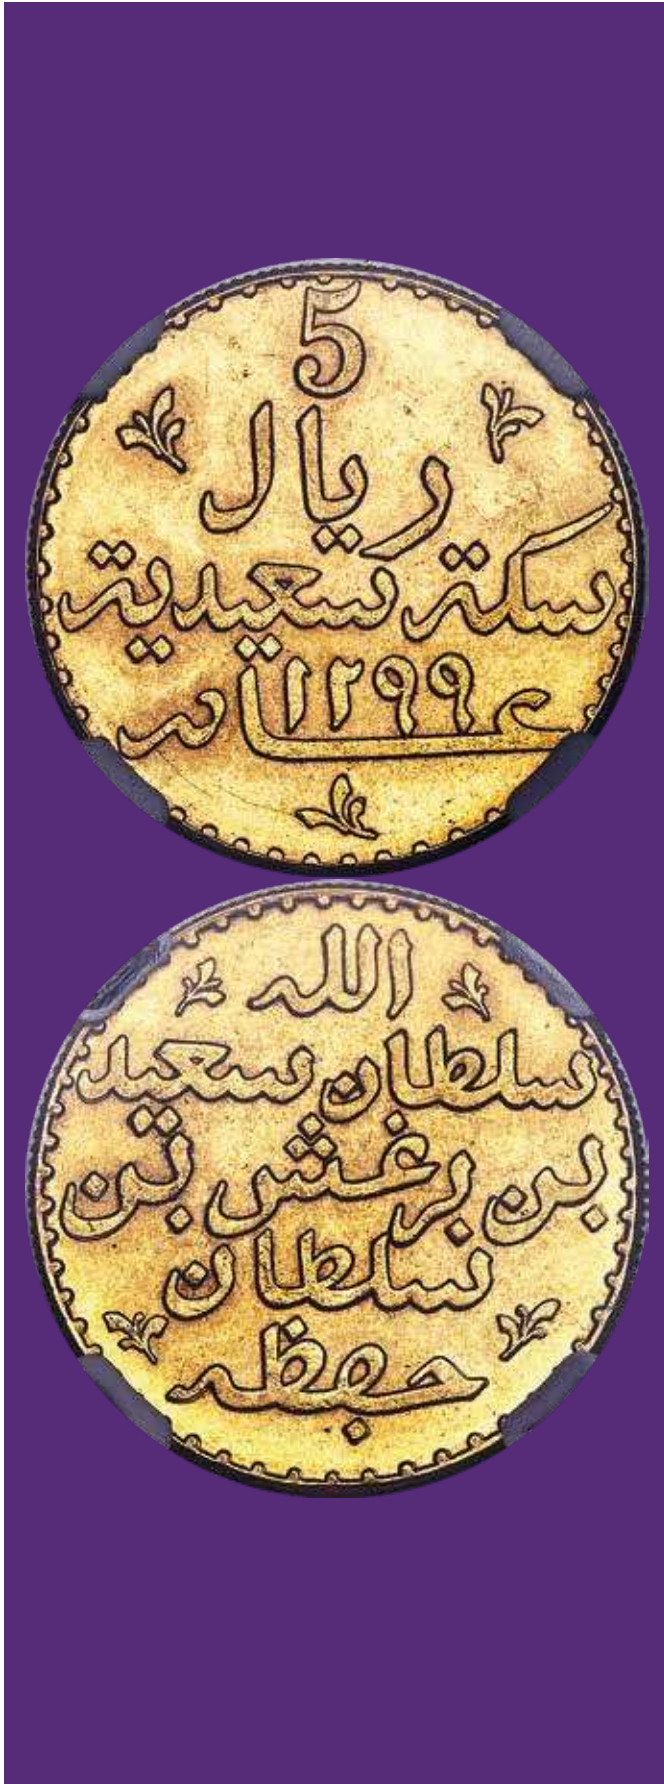 5
ريال
سكة سعيدية
١٢٩٩
الله
سلطان سعيد
بن برغش بن
سلطان
حفظه